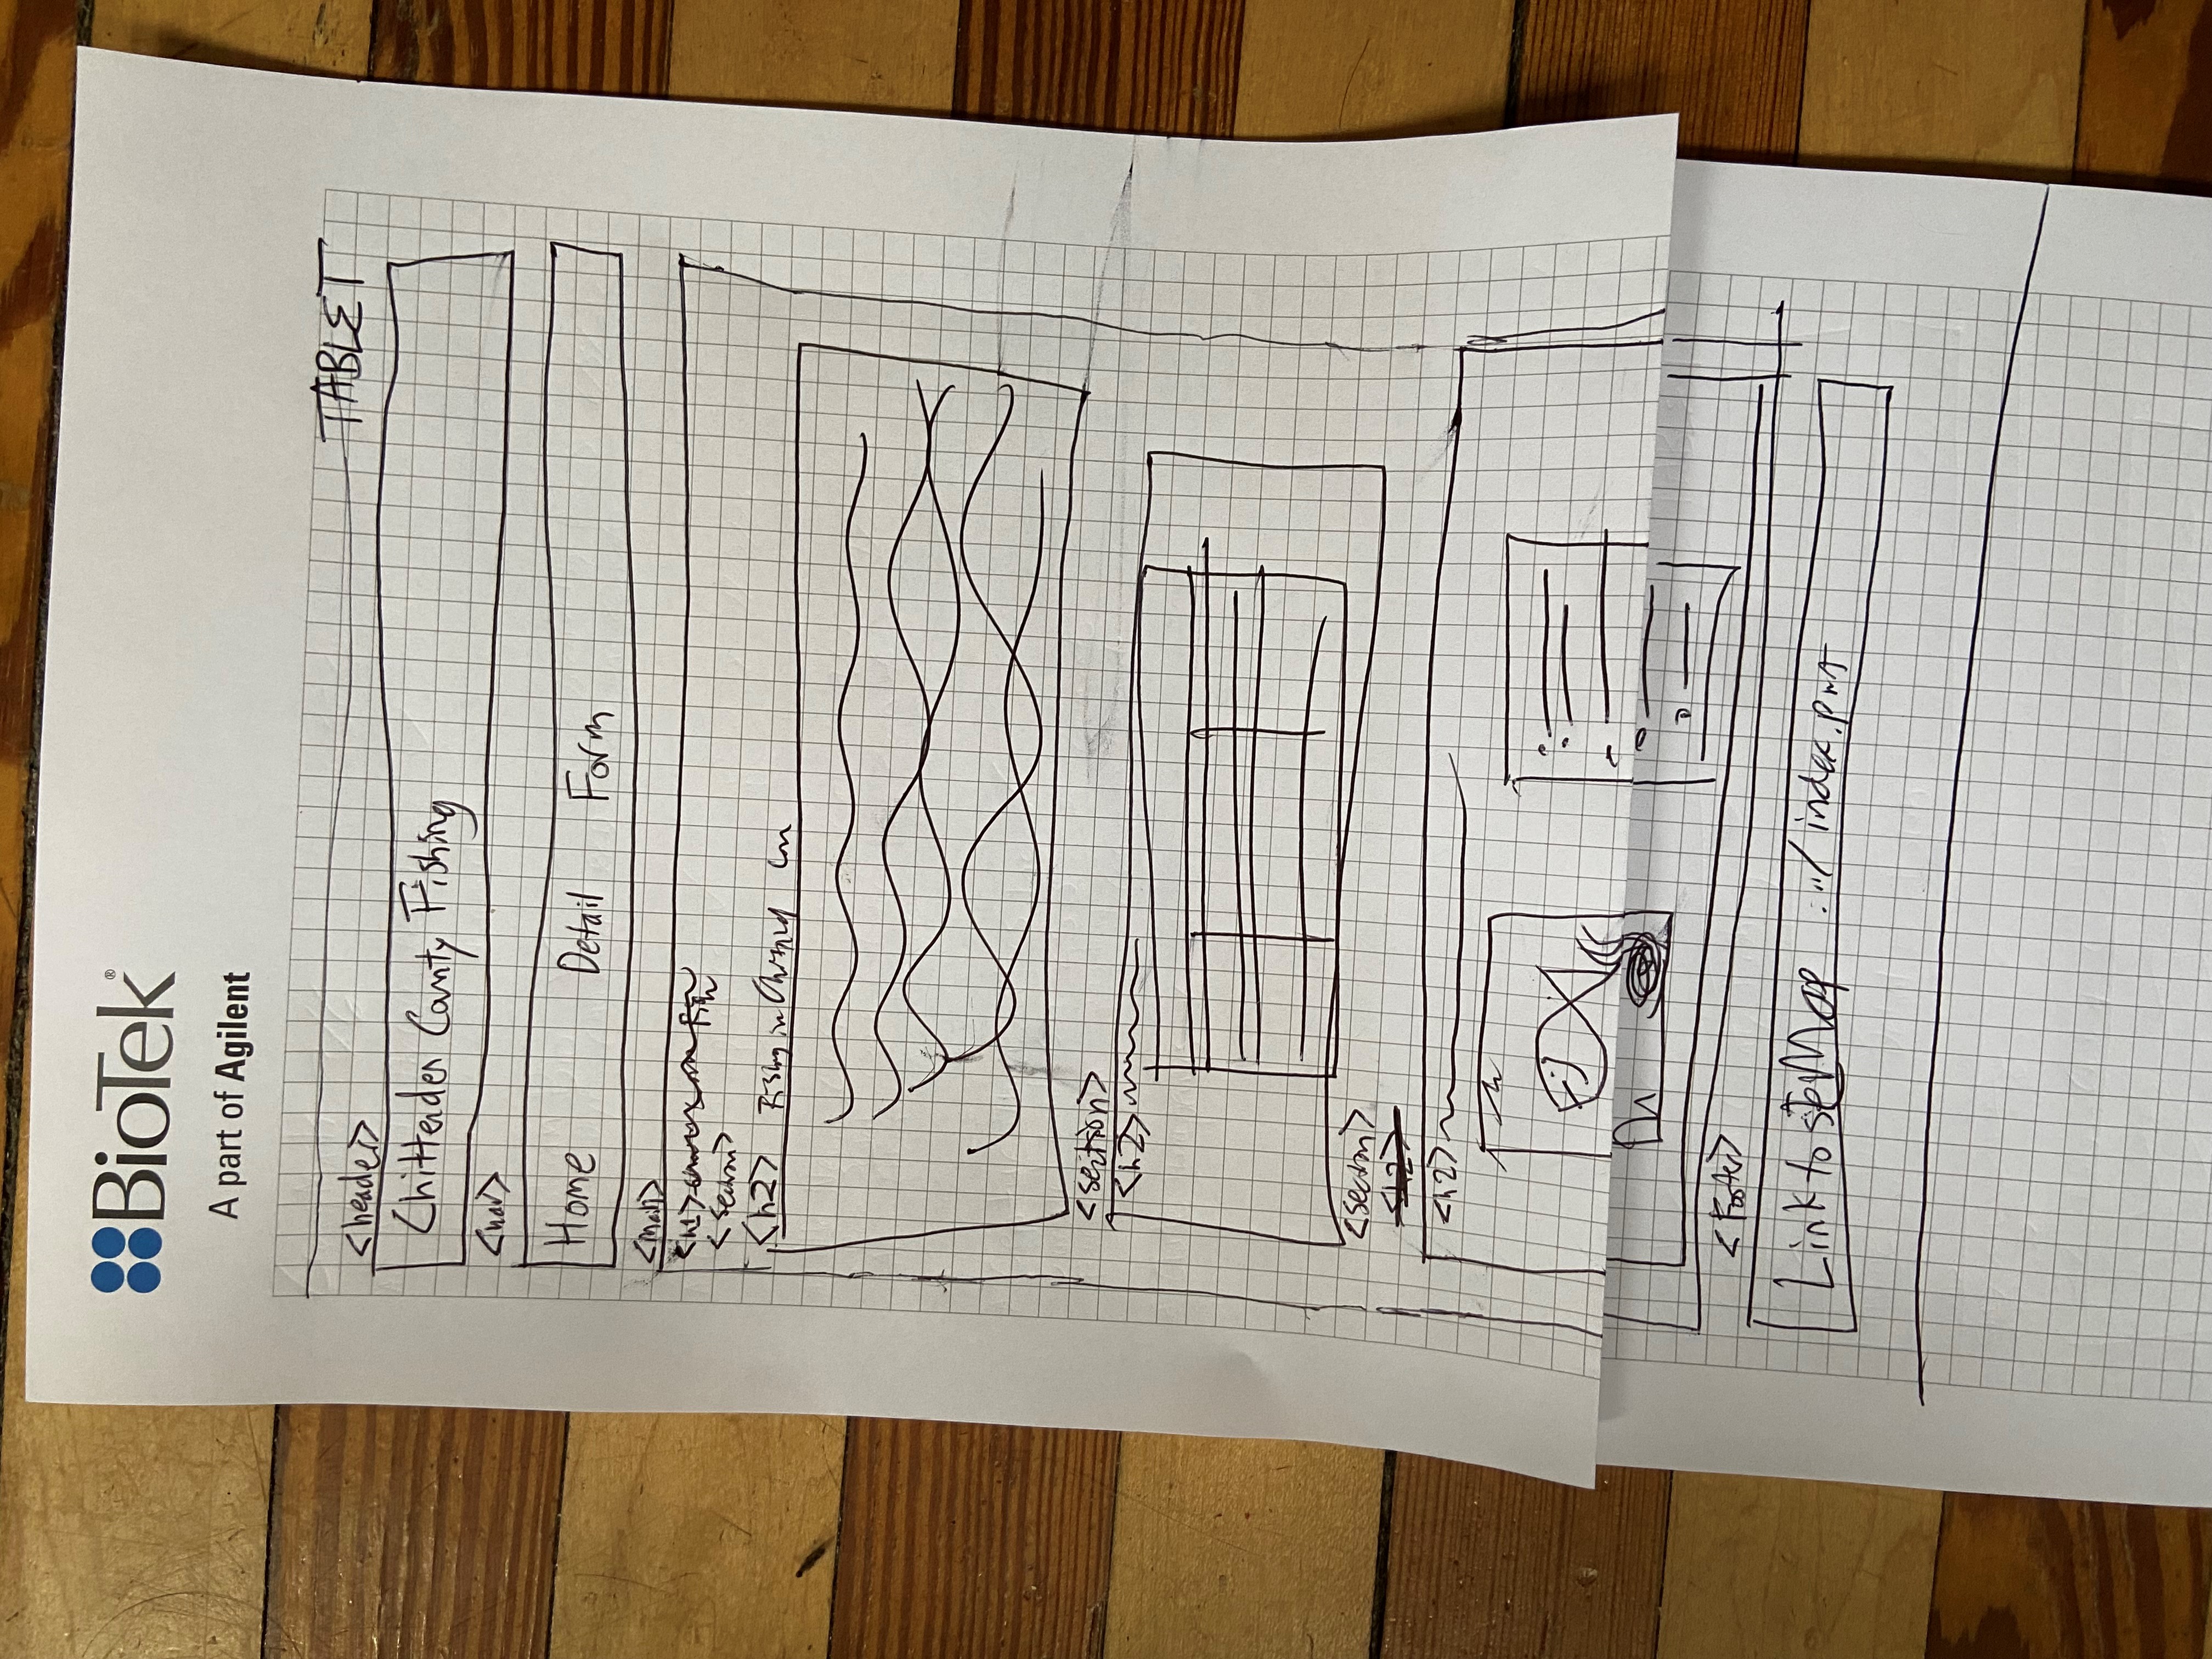 BioTek®
A part of Agilent
TABLET
<header>
Chittenden County Fishing
<nav>
Home Detail Form
<main>
<h1>
<section>
<h2> Fishing in
<section>
<h2>
<section>
<h2>
<h2>
<Footer>
Link to siteMap ../index.php